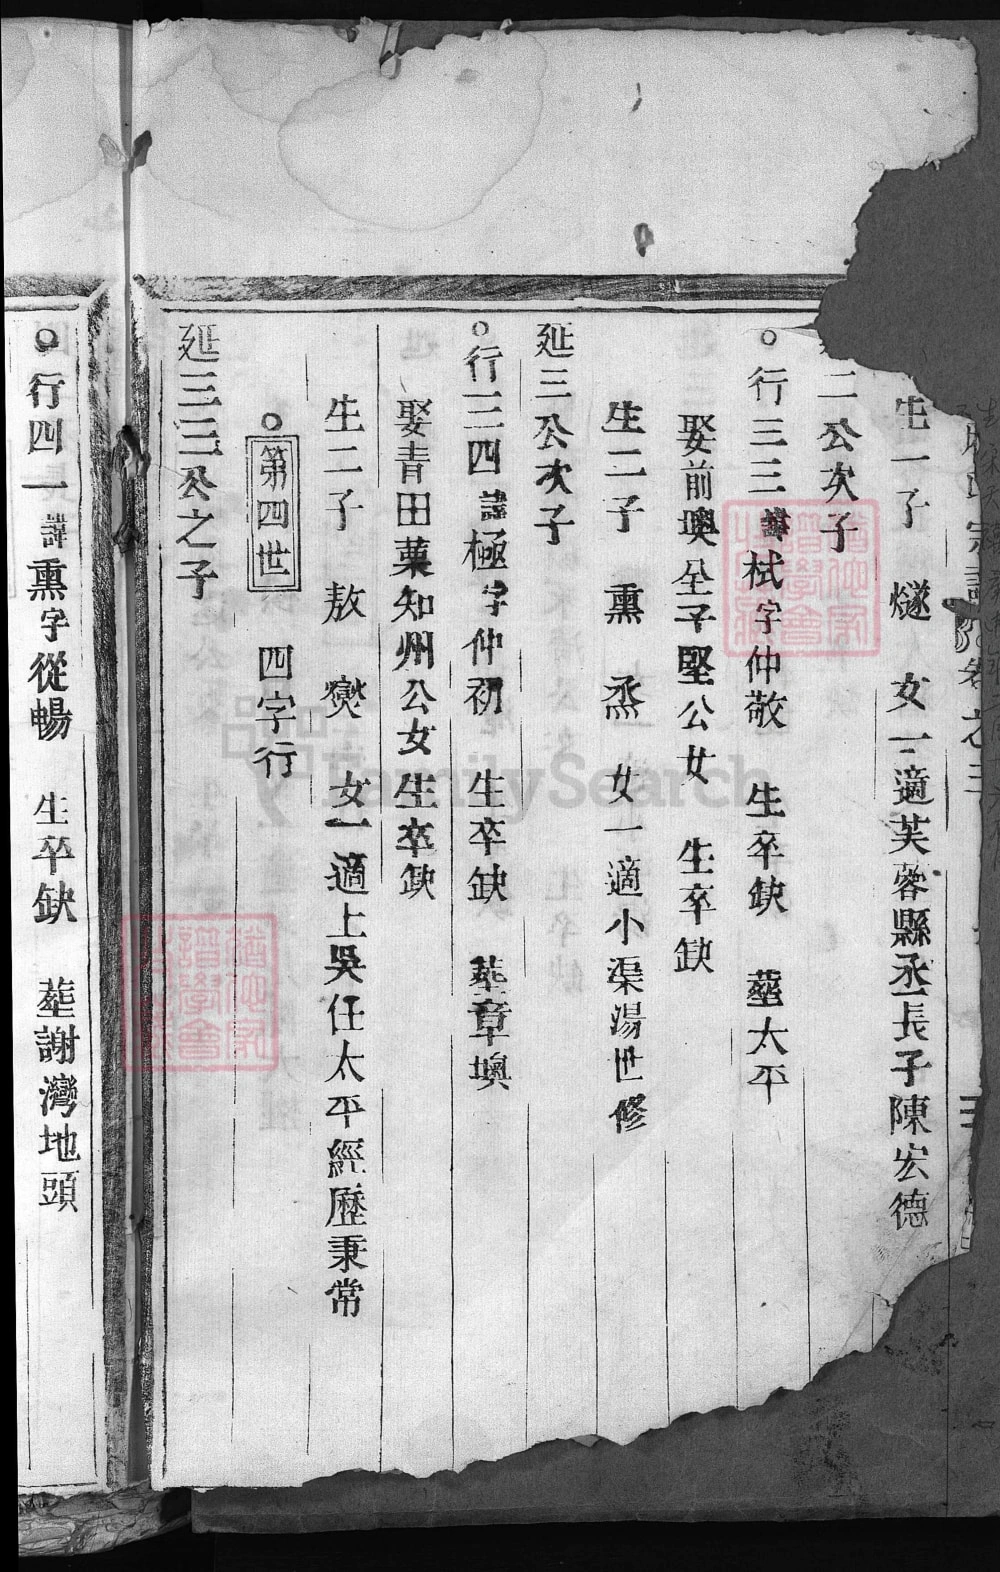 生一子　燧　女一適芙蓉縣丞長子陳宏德
二公次子
○行三三諱栻字仲敬　生卒缺　葬太平
娶前墺全子堅公女　生卒缺
生二子　熏　烝　女一適小渠湯世修
延三公次子
○行三四諱極字仲初　生卒缺　葬章墺
娶青田葉知州公女生卒缺
生二子　敖　爕　女一適上吳任太平經歷秉常
○第四世　四字行
延三三公之子
○行四一諱熏字從暢　生卒缺　葬謝灣地頭
FamilySearch